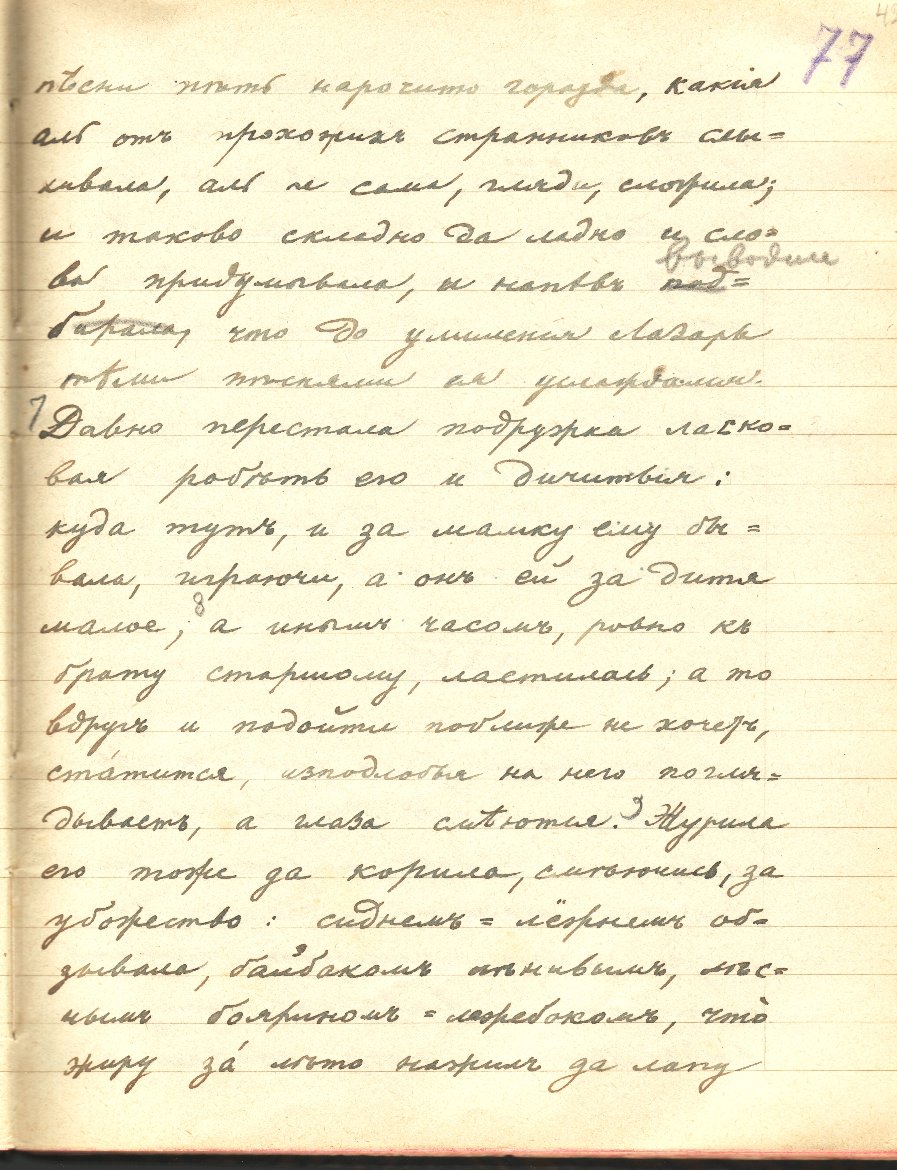 77
пѣсни пѣть нарочито горазда, какія
аль отъ прохожихъ странниковъ слы=
хивала, аль и сама, гляди, сложила;
и таково складно да ладно и сло=
ва придумывала, и напѣвъ под=
выводила
бирала, что до умиленія Лазарь
тѣми пѣснями ея услаждался.
7 Давно перестала подружка ласко=
вая робѣть его и дичиться:
куда тутъ, и за мамку ему бы=
вала, играючи, а онъ ей за дитя
малое; 8 а инымъ часомъ, ровно къ
брату старшому, ластилась; а то
вдругъ и подойти поближе не хочетъ,
ста́тится, изподлобья на него погля=
дываетъ, а глаза смѣются. 9 Журила
его тоже да корила, смѣючись, за
убожество: сиднемъ=лёжнемъ об=
зывала, байбакомъ лѣнивымъ, лѣс=
нымъ бояриномъ=лежебокомъ, что̀
жиру за́ лѣто нажилъ да лапу